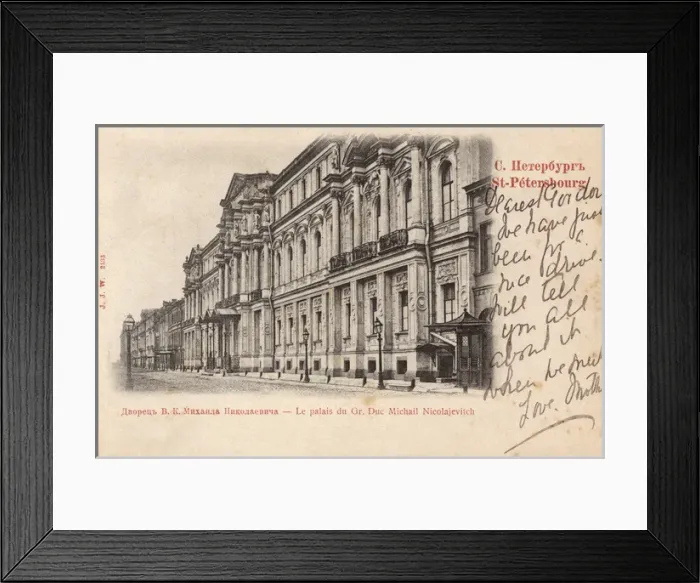 С. Петербургъ
St-Pétersbourg
Dearest Gordon
We have just
been for a
nice drive.
Will tell
you all
about it
when we meet
Love. Mother
J. J. W. 2135
Дворецъ В. К. Михаила Николаевича — Le palais du Gr. Duc Michail Nicolajevitch